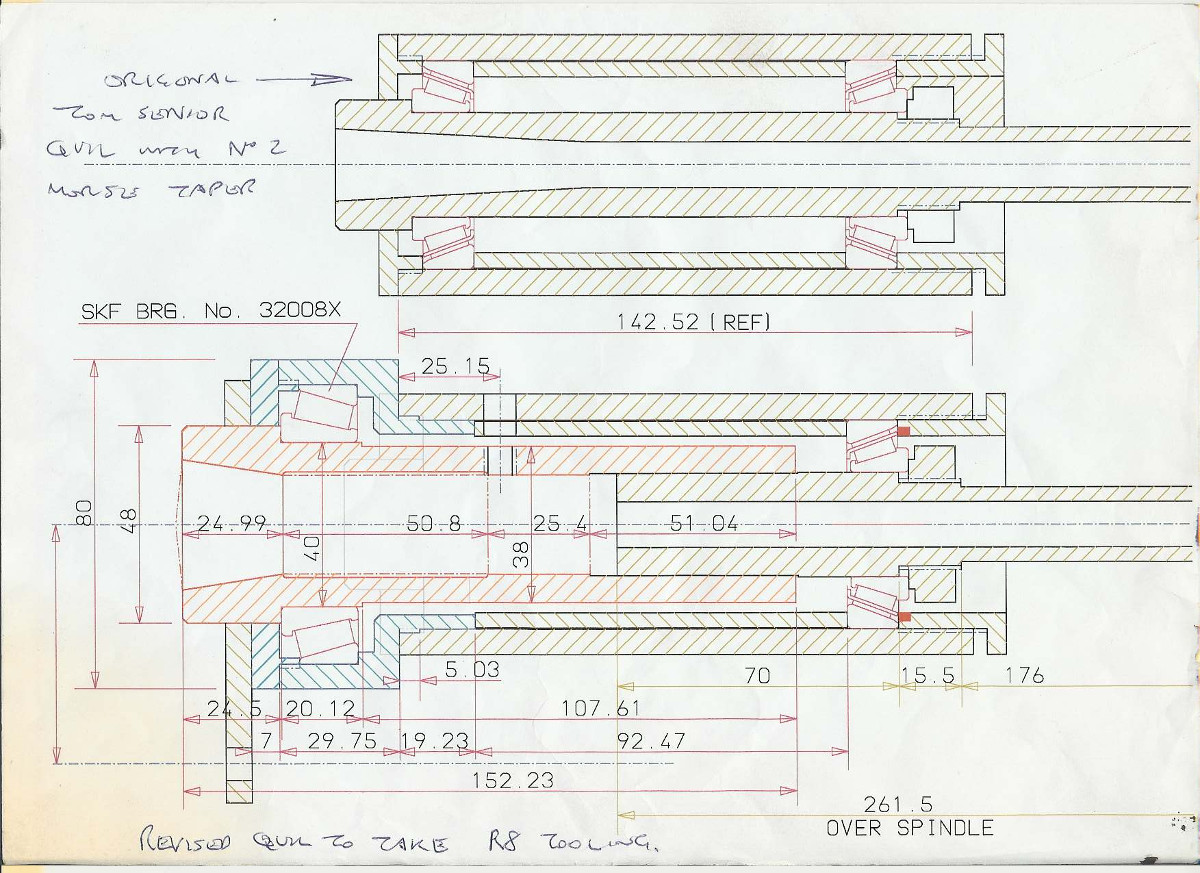 ORIGONAL
TOM SENIOR
QUIL WITH Nº 2
MORSE TAPER
SKF BRG. No. 32008X
142.52 (REF)
25.15
80
48
24.99
40
50.8
38
25.4
51.04
5.03
70
15.5
176
24.5
20.12
107.61
7
29.75
19.23
92.47
152.23
261.5
OVER SPINDLE
REVISED QUIL TO TAKE R8 TOOLING.